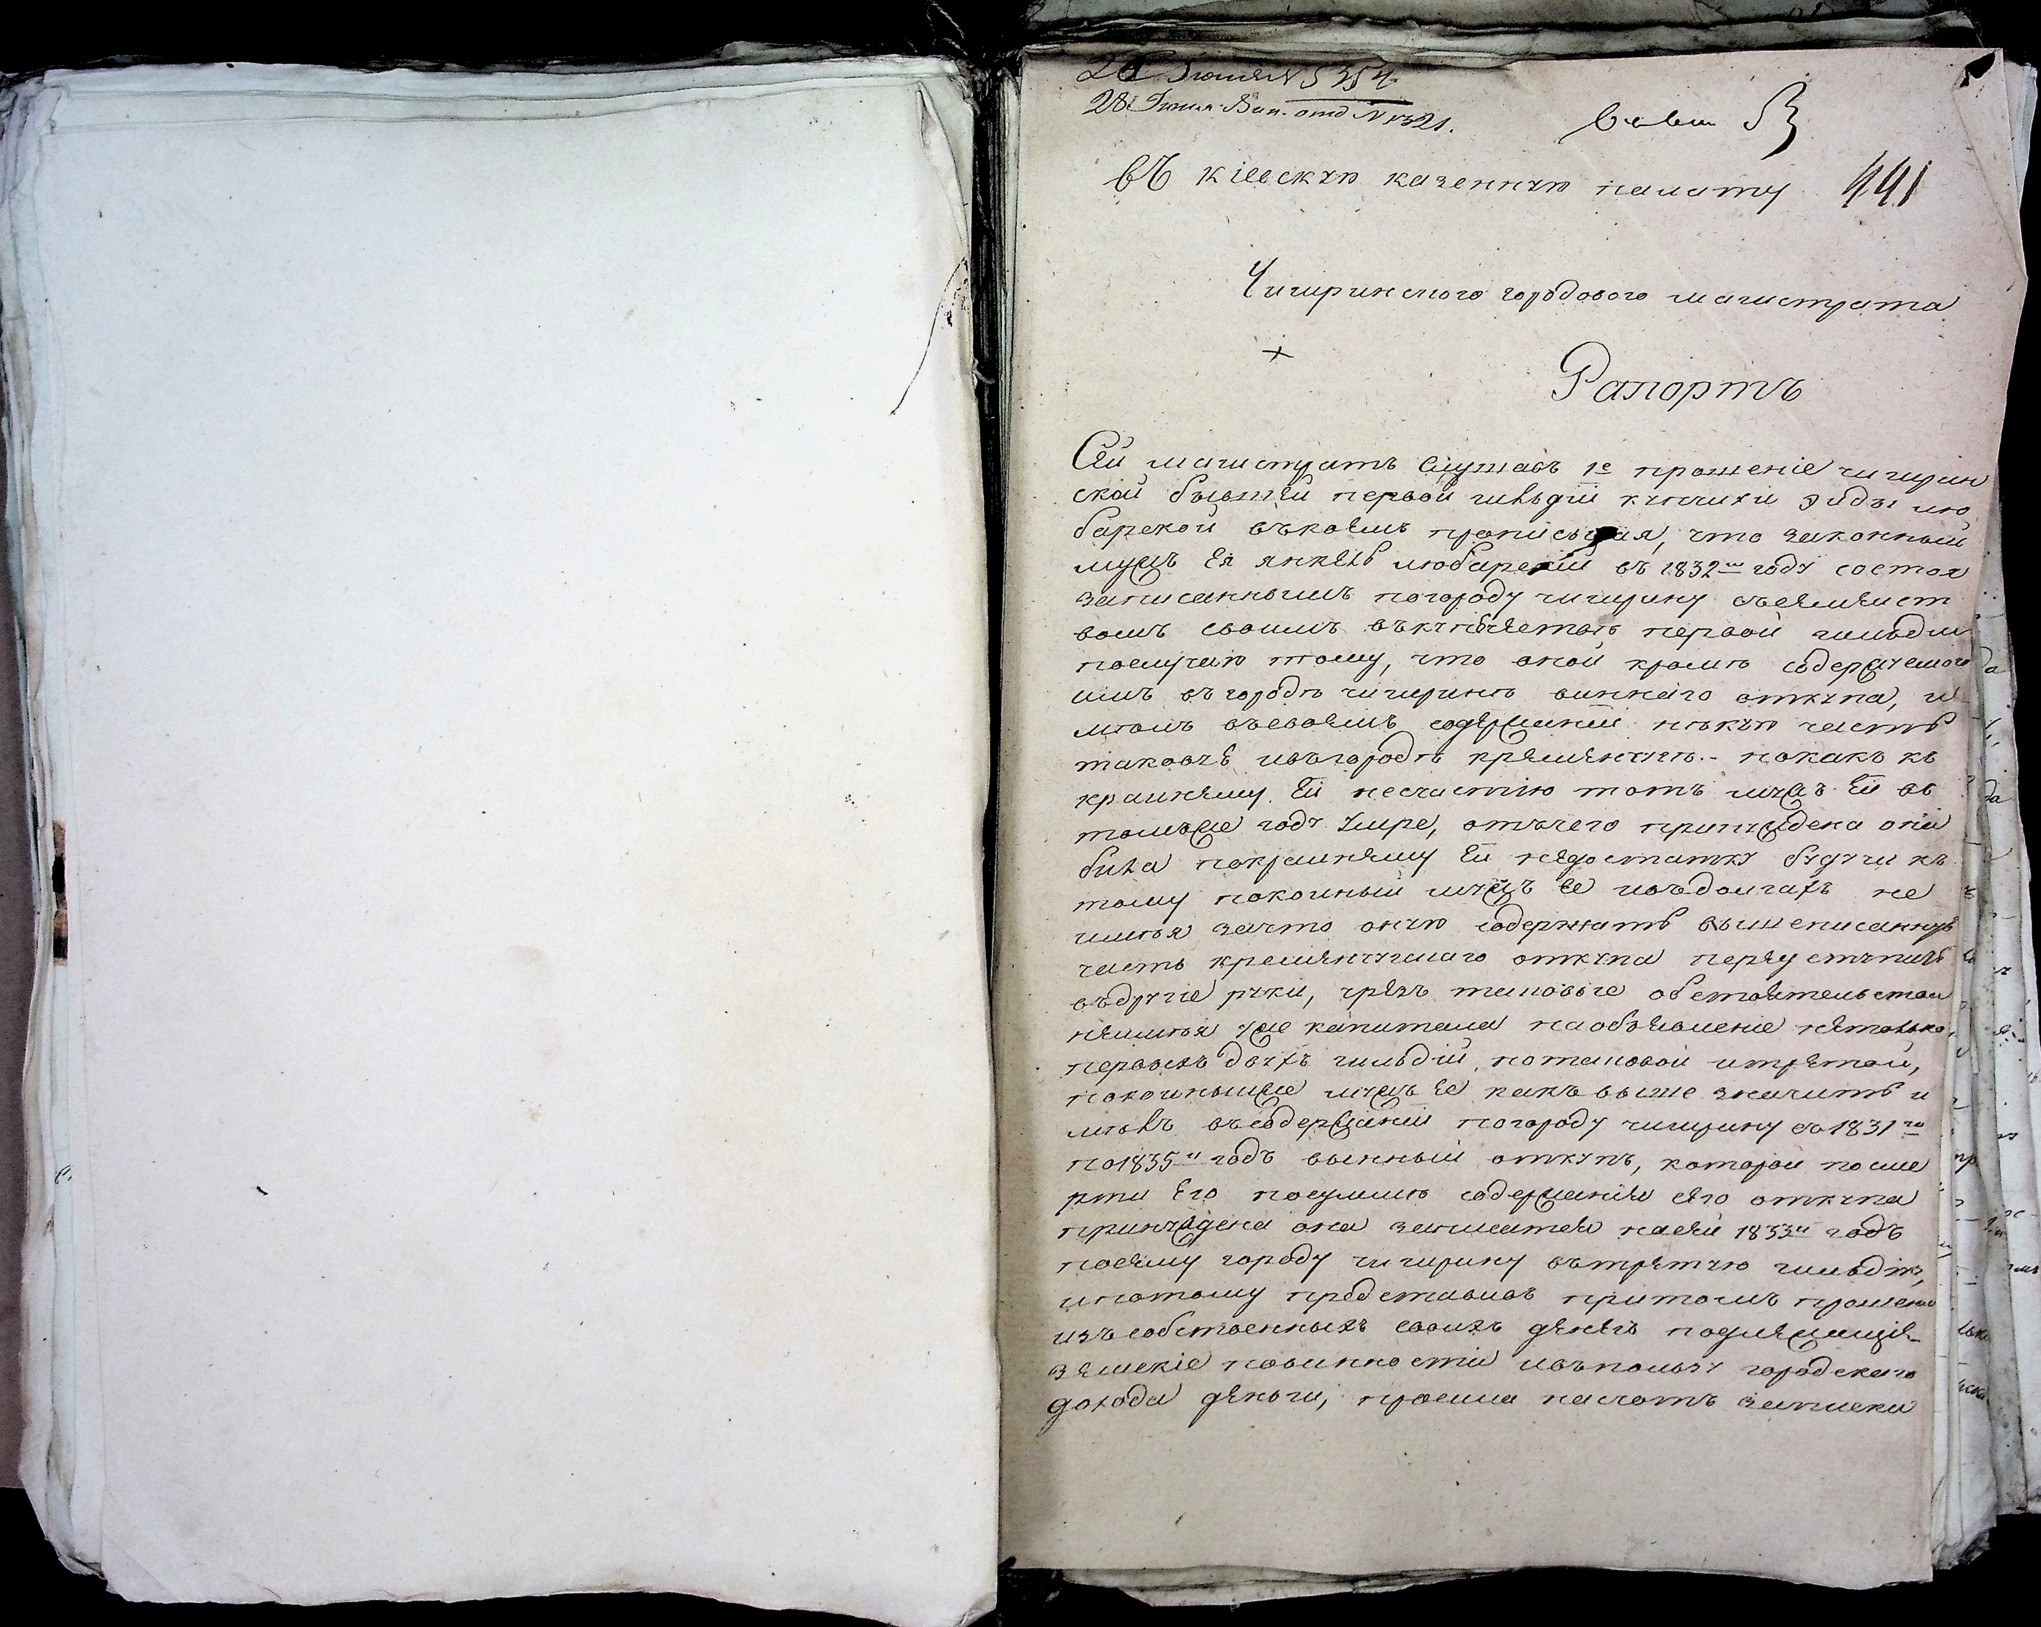 28 Июня Вин. отд N 1321.
441
въ кіевскую казенную палату
Чигиринского городового магистрата
Рапортъ
Сей магистратъ слушавъ 1е прошеніе чигирин
ской бывшей первой гильдіи купчихи Эйды лю
барской въкоемъ прописывая, что законный
мужъ Ея янкель любарскій въ 1832м году состоя
записаннымъ погороду чигирину съсемейст
вомъ своимъ въкупечество первой гильдіи
послучаю тому, что оной кроме содержемого
имъ въгороде чигирине виннаго откупа, и
мѣлъ въсвоемъ содержаніи некую часть
таковче ивъгороде кременчуге.- покакъ къ
крайнему Ей несчастію тотъ мужъ Ей въ
томъже году умре, отчего принуждена она
била покрайнему Ей недостатку будучи къ
тому покойный мужъ Ее въдолгахъ не
имѣя зачто оную содержать вышеписанную
часть кременчугскаго откупа переуступить
въдругіе руки, чрезъ таковые обстоятельства
неимѣя уже капитала наобъявленіе нетолько
первыхъ двухъ гильдій, потаковой итретой,
покойныйже мужъ Ее какъ выше значитъ и
мѣлъ въсодержаніи погороду чигирину съ 1831го
по1835й годъ винный откупъ, которой посме
рти Его посумме содержанія сего откупа
принуждена она записатся насей 1833й годъ
посему городу чигирину въ третюю гильдію,
ипотому представивъ притомъ прошеніи
изъ собственныхъ своихъ денегъ подлежащіе
земскіе повинности ивъпользу городского
дохода деньги, просила насчотъ записки